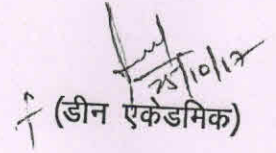 25/10/17
(डीन एकेडमिक)